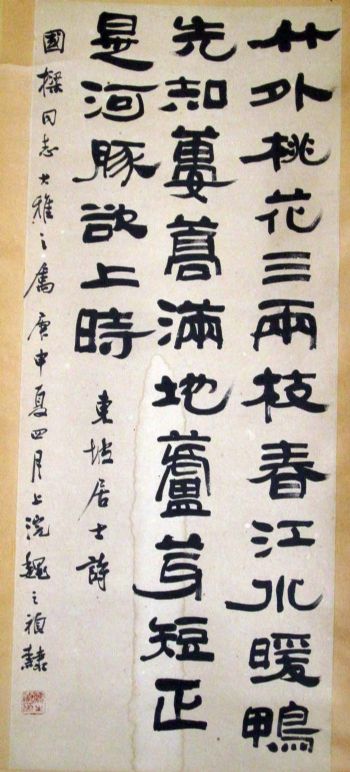 竹外桃花三兩枝春江水暖鴨
先知蔞蒿滿地蘆芽短正
是河豚欲上時
東坡居士詩
國同志大雅之屬庚申夏四月上浣魏之禎隸